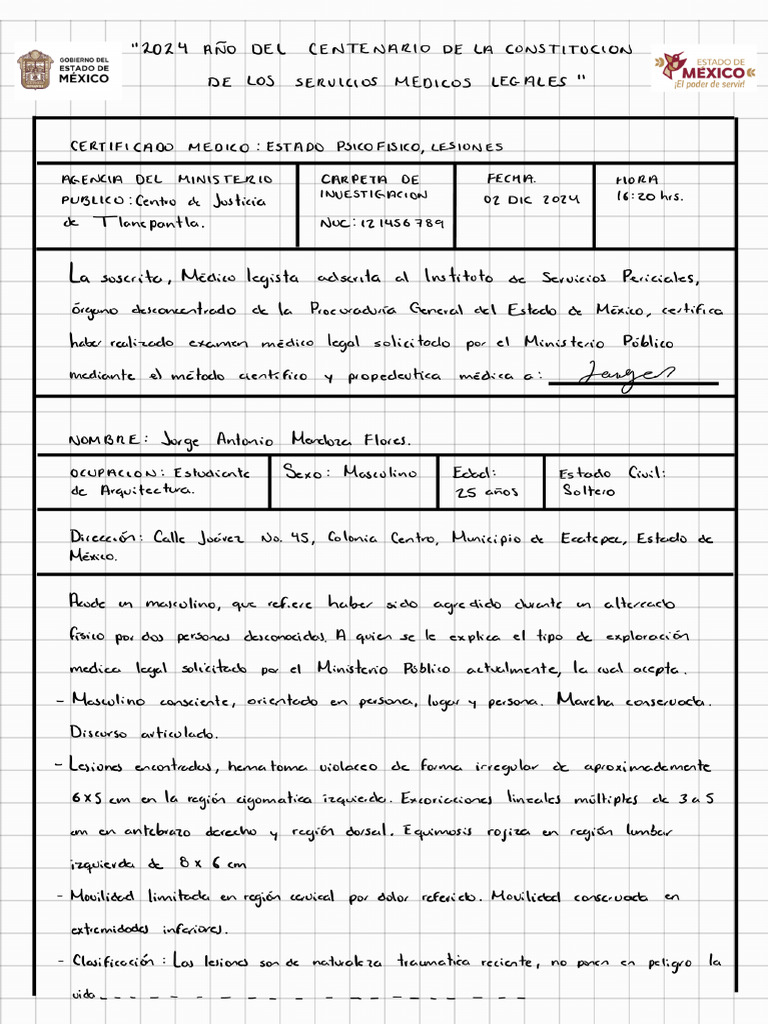 "2024 AÑO DEL CENTENARIO DE LA CONSTITUCION
DE LOS SERVICIOS MEDICOS LEGALES"
GOBIERNO DEL
ESTADO DE
MÉXICO
ESTADO DE
MÉXICO
¡El poder de servir!
CERTIFICADO MEDICO: ESTADO PSICOFISICO, LESIONES
AGENCIA DEL MINISTERIO
PUBLICO: Centro de Justicia
de Tlanepantla.
CARPETA DE
INVESTIGACION
NUC: 121456789
FECHA.
02 DIC 2024
HORA
16:20 hrs.
La suscrita, Médico legista adscrita al Instituto de Servicios Periciales,
órgano desconcentrado de la Procuraduría General del Estado de México, certifica
haber realizado examen médico legal solicitado por el Ministerio Público
mediante el método científico y propedeutica médica a:
NOMBRE: Jorge Antonio Mendoza Flores.
OCUPACION: Estudiante
de Arquitectura.
Sexo: Masculino
Edad:
25 años
Estado Civil:
Soltero
Dirección: Calle Juárez No. 45, Colonia Centro, Municipio de Ecatepec, Estado de
México.
Acude un masculino, que refiere haber sido agredido durante un altercado
físico por dos personas desconocidas. A quien se le explica el tipo de exploración
medica legal solicitado por el Ministerio Público actualmente, la cual acepta.
- Masculino consciente, orientado en persona, lugar y persona. Marcha conservada.
Discurso articulado.
- Lesiones encontradas, hematoma violaceo de forma irregular de aproximademente
6x5 cm en la región cigomatica izquierda. Excoriaciones lineales múltiples de 3 a 5
cm en antebrazo derecho y región dorsal. Equimosis rojiza en región lumbar
izquierda de 8 x 6 cm
- Movilidad limitada en región cervical por dolor referido. Movilidad conservada en
extremidades inferiores.
- Clasificación: Las lesiones son de naturaleza traumatica reciente, no ponen en peligro la
vida _ _ _ _ _ _ _ _ _ _ _ _ _ _ _ _ _